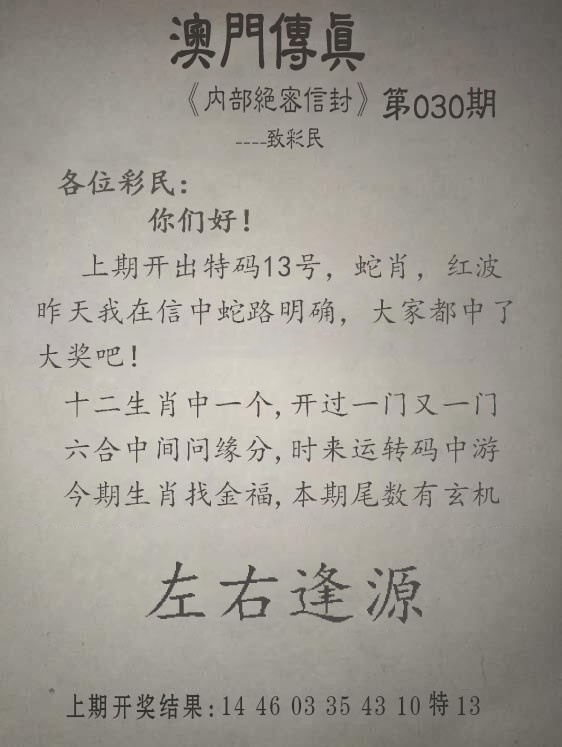 澳門傳眞
《内部絕密信封》第030期
----致彩民
各位彩民：
你们好！
上期开出特码13号，蛇肖，红波
昨天我在信中蛇路明确，大家都中了
大奖吧！
十二生肖中一个,开过一门又一门
六合中间问缘分,时来运转码中游
今期生肖找金福,本期尾数有玄机
左右逢源
上期开奖结果:14 46 03 35 43 10 特 13